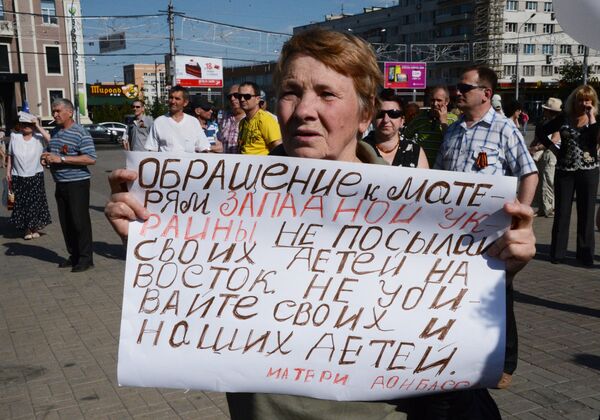 ОБРАЩЕНИЕ К МАТЕ-
РЯМ ЗАПАДНОЙ УК
РАИНЫ НЕ ПОСЫЛАЙ
СВОИХ ДЕТЕЙ НА
ВОСТОК НЕ УБИ-
ВАЙТЕ СВОИХ И
НАШИХ ДЕТЕЙ.
МАТЕРИ ДОНБАСС